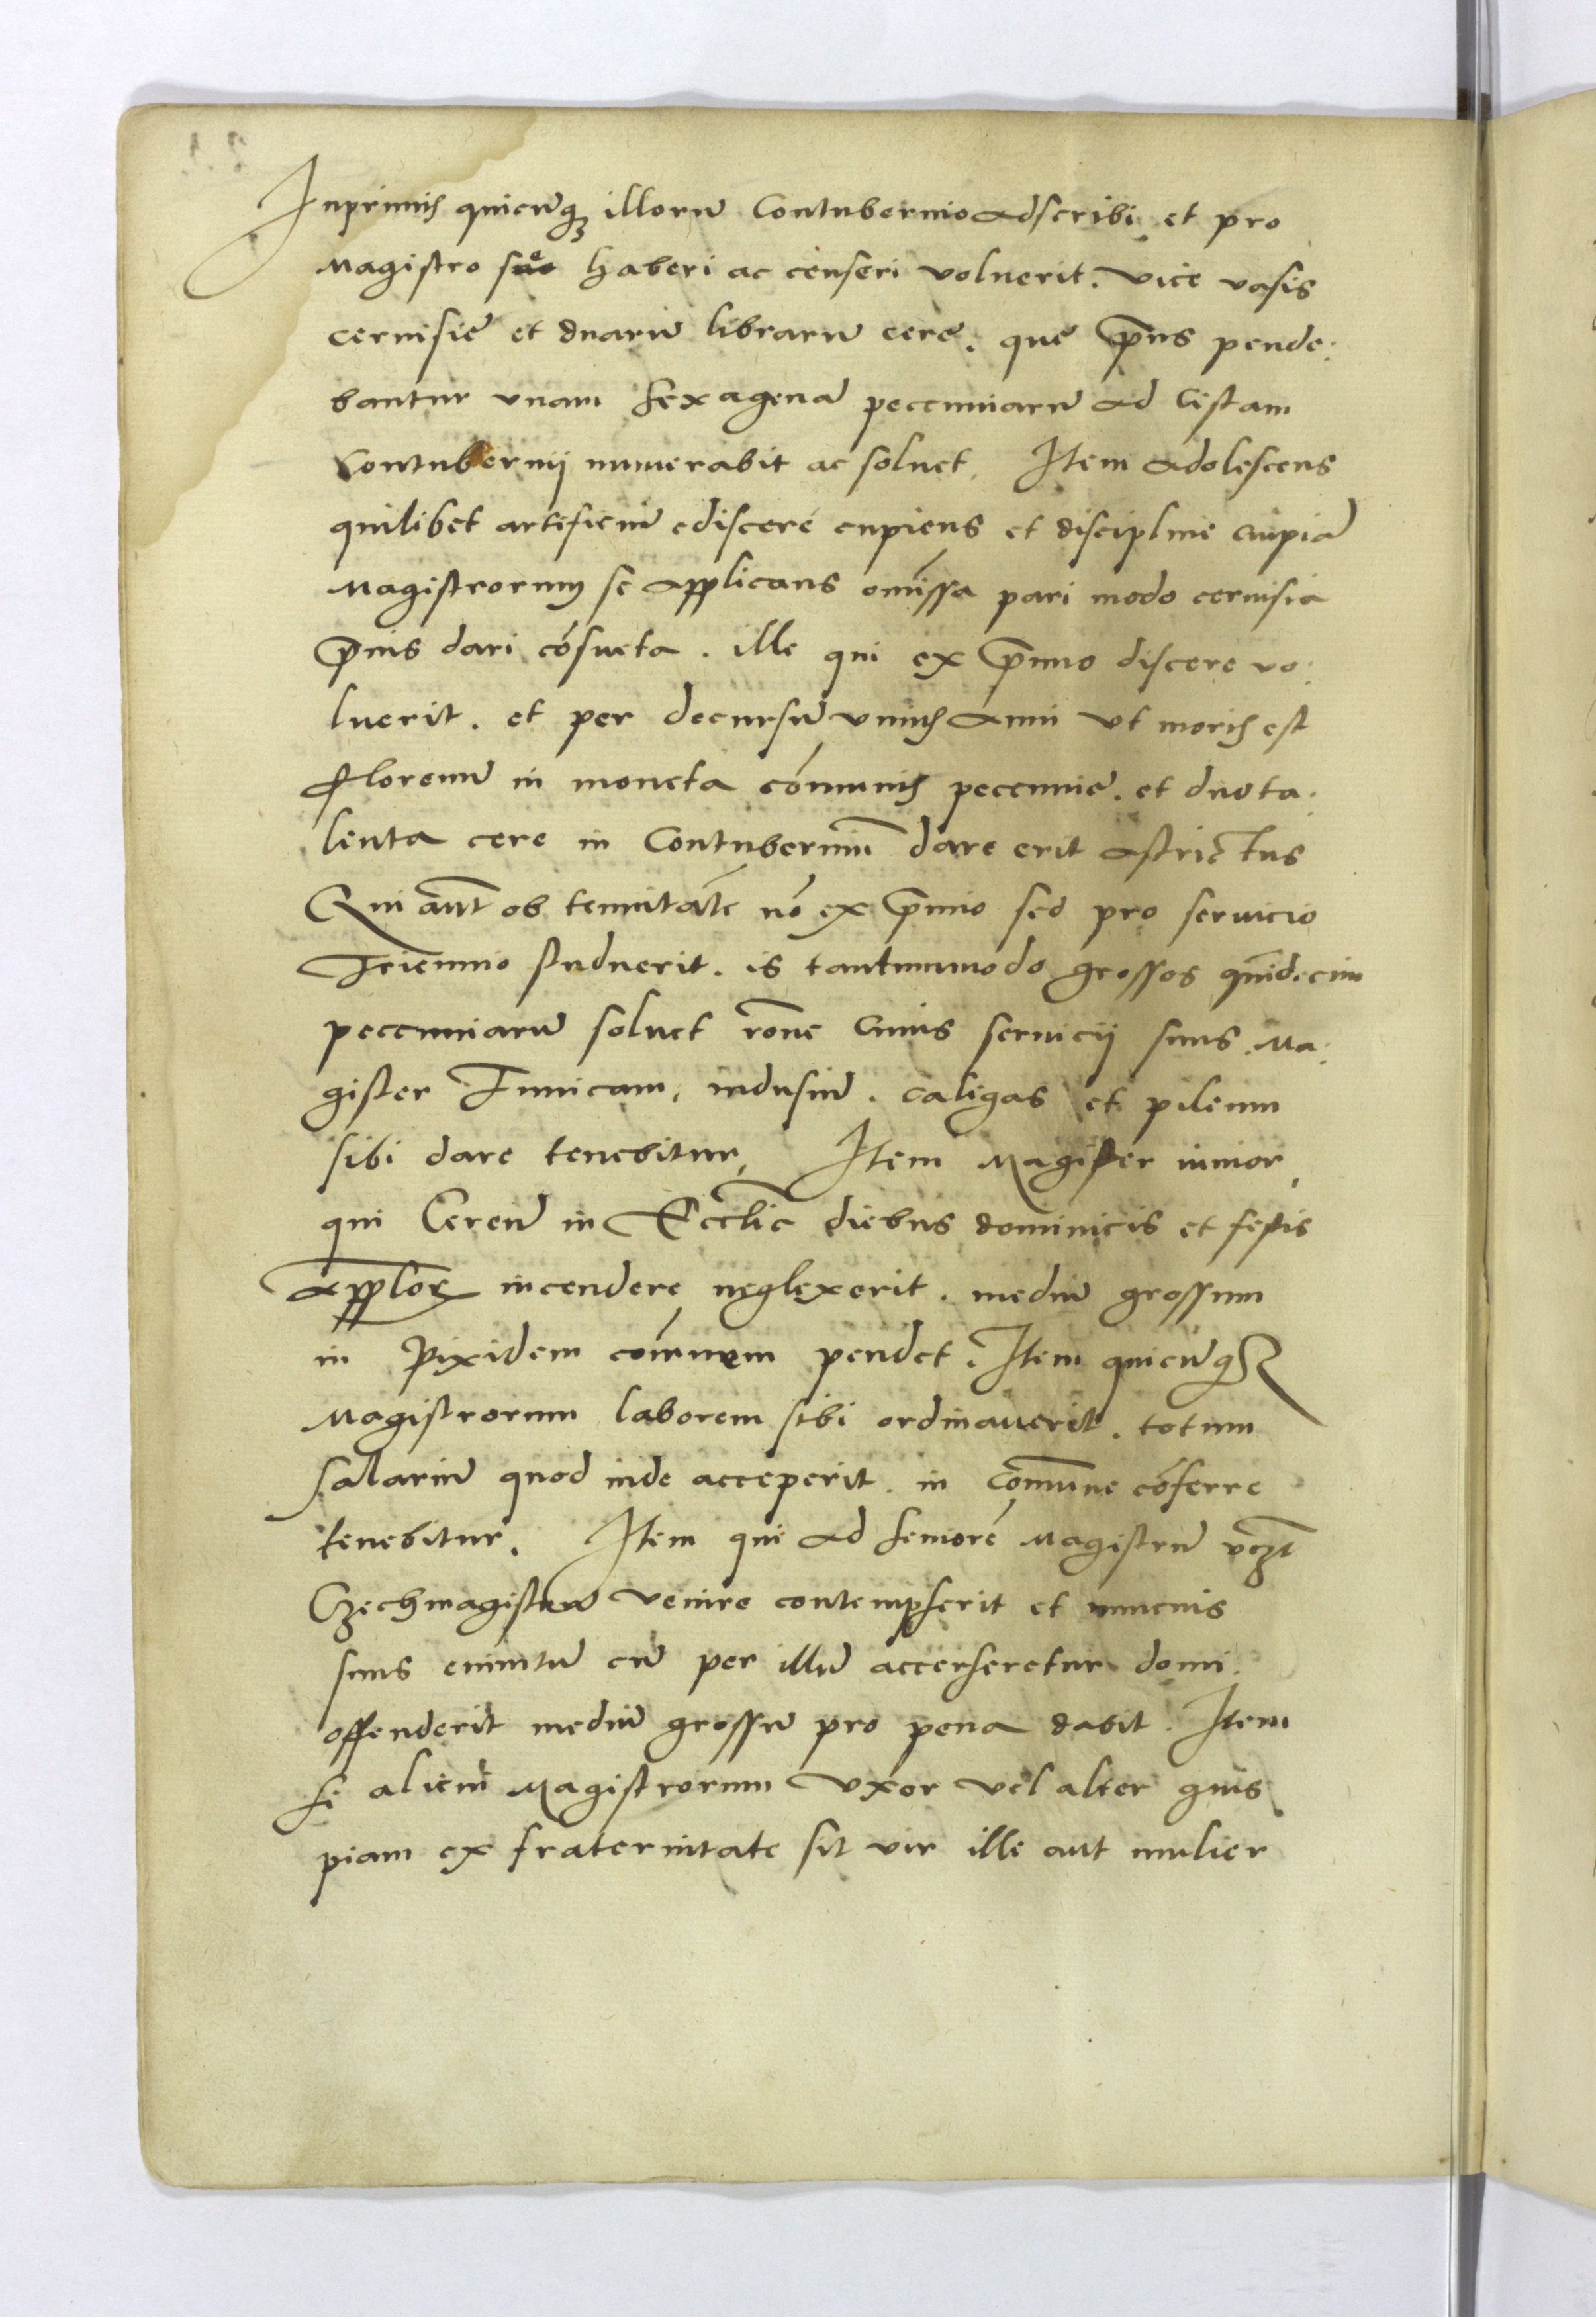 Inprimis quicunqȝ illorū Contubernio adscribi et pro
Magistro se haberi ac censeri voluerit. vice vasis
cervisie et duarū librarū cere. que prius pende:
bantur vnam sexagenā peccuniarū ad Cistam
Contubernij numerabit ac soluet. Item adolescens
quilibet artificiū ediscere cupiens et discipline cuipiā
Magistrorum se applicans omissa pari modo cervisia
prius dari cōsueta. ille qui ex p̄mio discere vo:
luerit. et per decursū vnius anni vt moris est
florenū in moneta cōmunis peccunie. et duo ta:
lenta cere in Contuberniū dare erit astrictus
Qui aut̄ ob tenuitatē nō ex p̄mio sed pro servicio
Triennio studuerit. is tantummodo grossos quīdecim
peccuniarū soluet rōne Cuius servicij suus Ma:
gister Tunicam, indusiū. caligas et pileum
sibi dare tenebitur, Item Magister iunior
qui Cereū in Ecclie diebus dominicis et festis
applorȝ incendere neglexerit. mediū grossum
in Pixidem coīmunem pendet. Item quicūqȝ
Magistrorum laborem sibi ordinauerit. totum
salariū quod inde acceperit. in Comūne cōferre
tenebitur. Item qui ad seniorē Magistrū vczt
Czechmagistrū venire contempserit et nuncius
suus eū cū per illū accerseretur domi
offenderit mediū grossū pro pena dabit. Item
si alicui Magistrorum vxor vel alter quis
piam ex fraternitate sit vir ille aut mulier